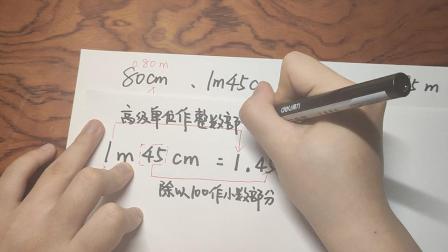 0.80m
80cm、1m45c
5m
高级单位作整数部
1m 45 cm = 1.45
除以100作小数部分
deli